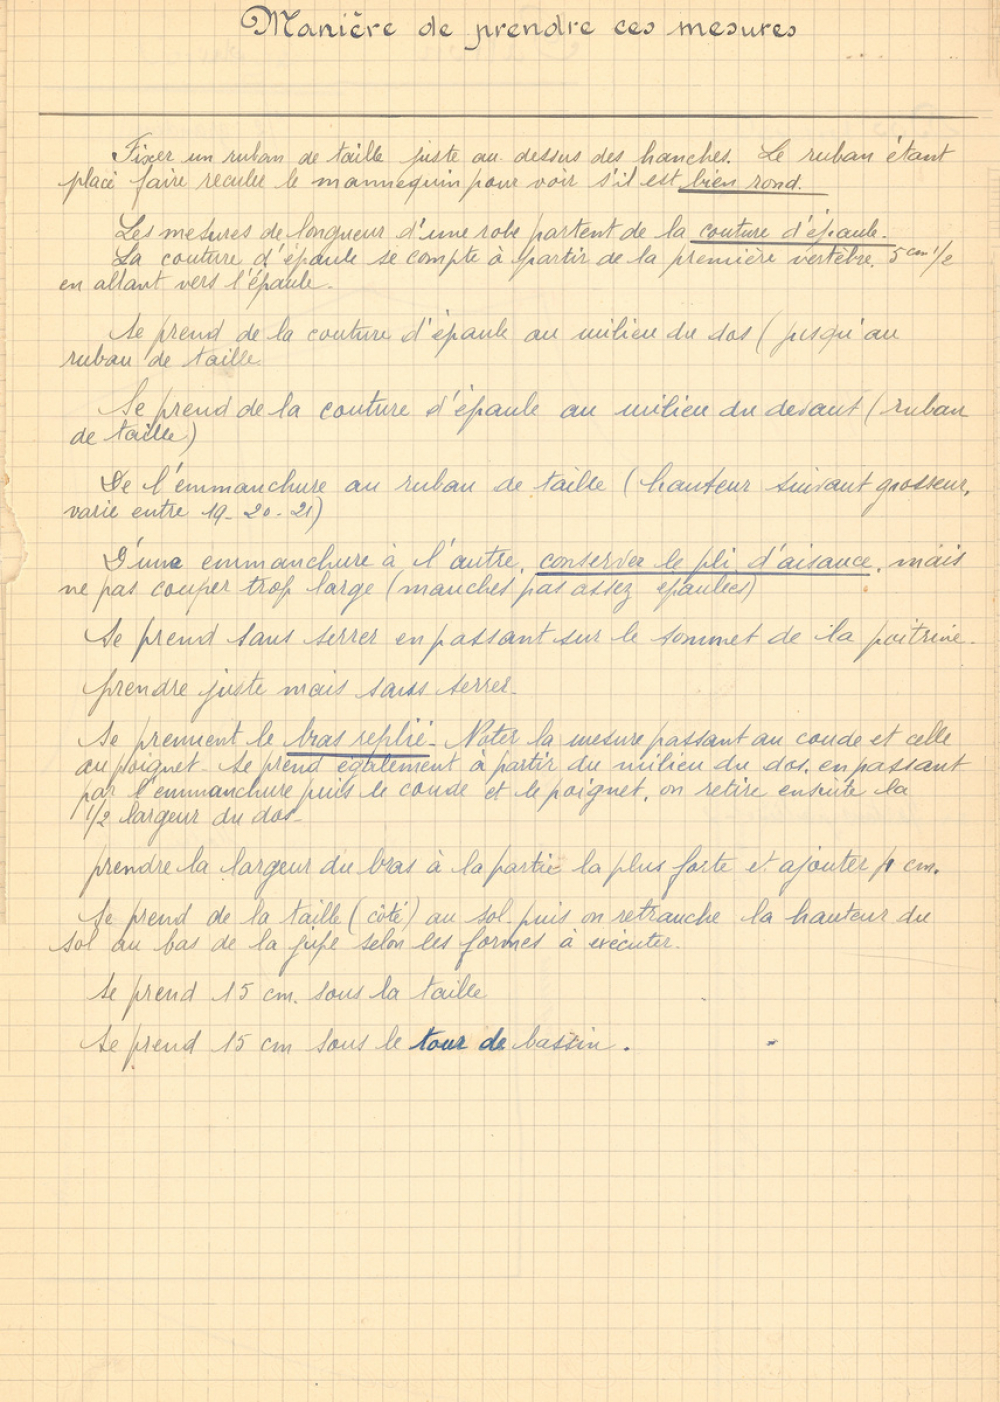 Manière de prendre ces mesures
Fixer un ruban de taille juste au dessus des hanches. Le ruban étant
placé faire reculer le mannequin pour voir s'il est bien rond.
Les mesures de longueur d'une robe partent de la couture d'épaule.
La couture d'épaule se compte à partir de la première vertèbre. 5 cm 1/2
en allant vers l'épaule.
Se prend de la couture d'épaule au milieu du dos (jusqu'au
ruban de taille.
Se prend de la couture d'épaule au milieu du devant (ruban
de taille)
De l'emmanchure au ruban de taille (hauteur suivant grosseur,
varie entre 19-20-21)
D'une emmanchure à l'autre, conserver le pli d'aisance, mais
ne pas couper trop large (manches pas assez épaulées)
Se prend sans serrer en passant sur le sommet de la poitrine.
prendre juste mais sans serrer.
Se prennent le bras replié. Noter la mesure passant au coude et celle
au poignet. Se prend également à partir du milieu du dos, en passant
par l'emmanchure puis le coude et le poignet, on retire ensuite la
1/2 largeur du dos.
prendre la largeur du bras à la partie la plus forte et ajouter cm.
Se prend de la taille (côté) au sol. puis on retranche la hauteur du
sol au bas de la jupe selon les formes à exécuter.
Se prend 15 cm. sous la taille
Se prend 15 cm sous le tour de bassin.